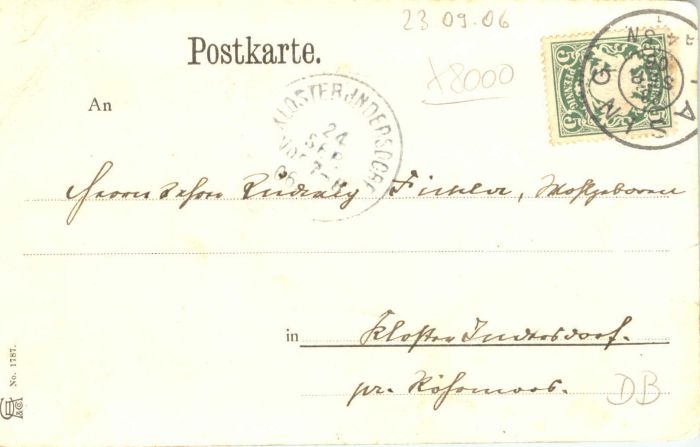 23.09.06
Postkarte.
x8000
5
PFENNIG
5
An
KLOSTER INDERSDORF
24
SEP.
06
Herrn Lehrer Ludwig Fichler, Wohlgeboren
in Kloster Indersdorf.
pr. Röhrmoos.
DB
No. 1787.